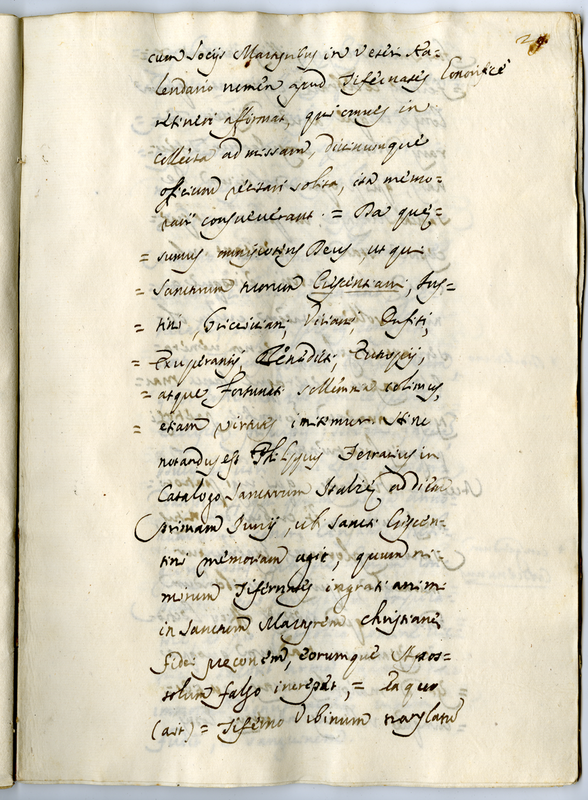 cum Socijs Martyribus in veteri Ka=
lendario nomen apud Tifernates honorificè
retineri affirmat, qui omnes in
collecta ad missam, divinumque
officium recitari solita, ita memo=
rari consueverant. = Da quę=
= sumus omnipotens Deus ut qui
= Sanctorum tuorum Crescentiani, Jus=
= tini, Griciniani, Viriani, Orfiti,
= Exuperantij, Benedicti, Eutropij,
= atque Fortunati sollemnia colimus,
= etiam virtutes imitemur. Hinc
notandus est Philippus Ferrarius in
Catalogo Sanctorum Italię ad diem
primam Junij, ubi Sancti Crescen=
tini memoriam agit, quum ni=
mirum Tifernates ingrati animi
in Sanctum Martyrem christianę
fidei pręconem, eorumque Apos=
tolum falso increpat, = Ea quo
(ait) = Tiferno Urbinum translato